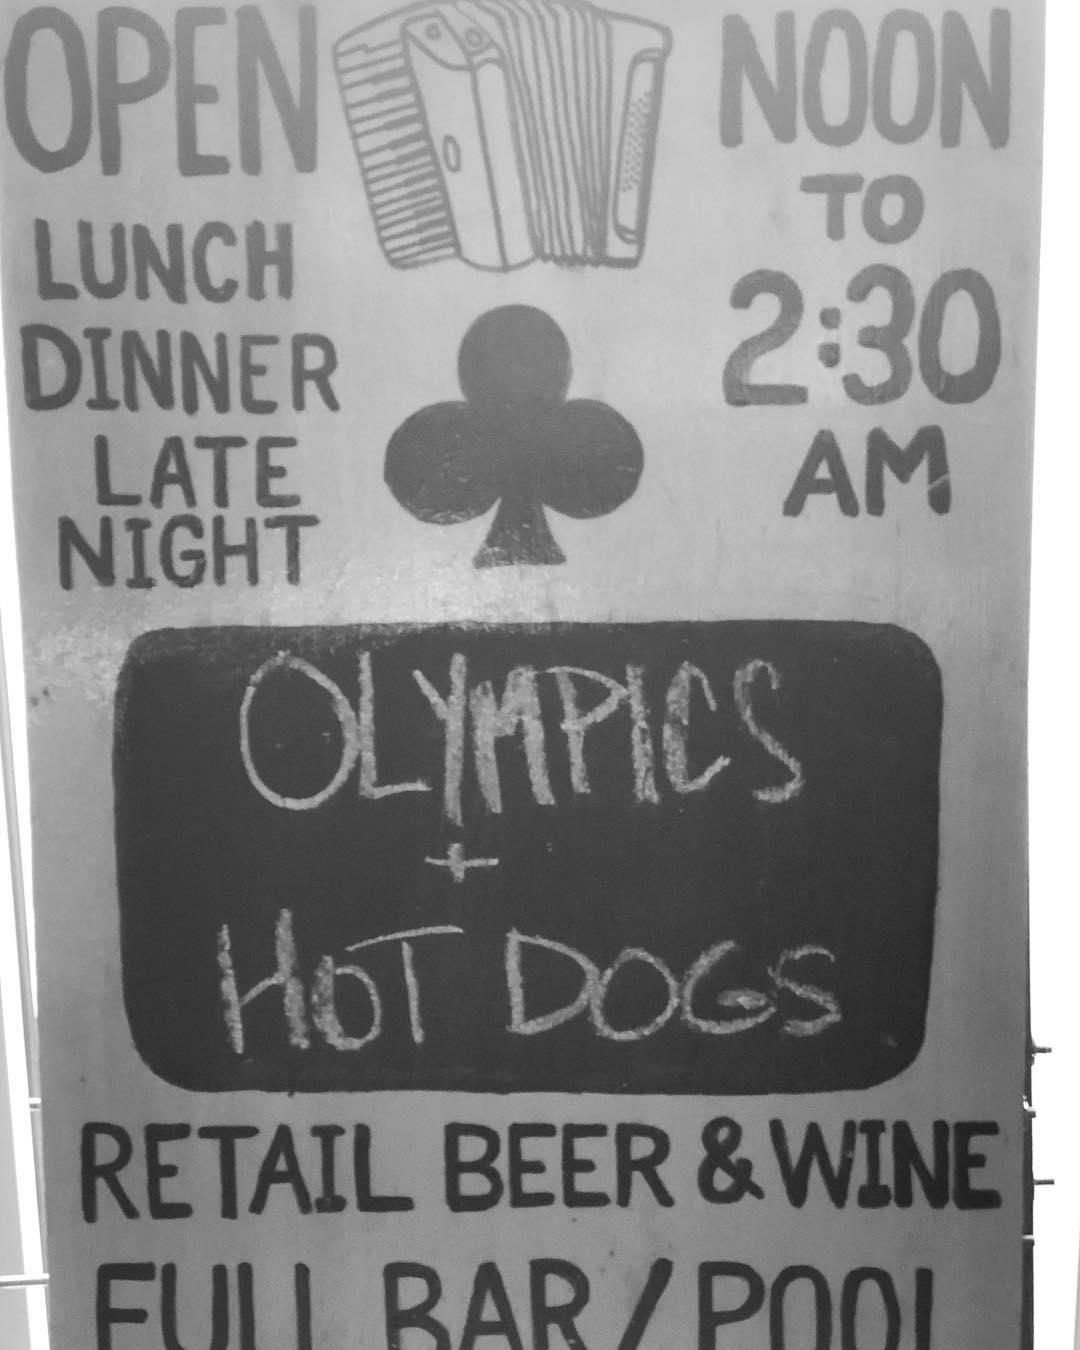 OPEN
LUNCH
DINNER
LATE
NIGHT
NOON
TO
2:30
AM
OLYMPICS
+
HOT DOGS
RETAIL BEER & WINE
FULL BAR / POOL